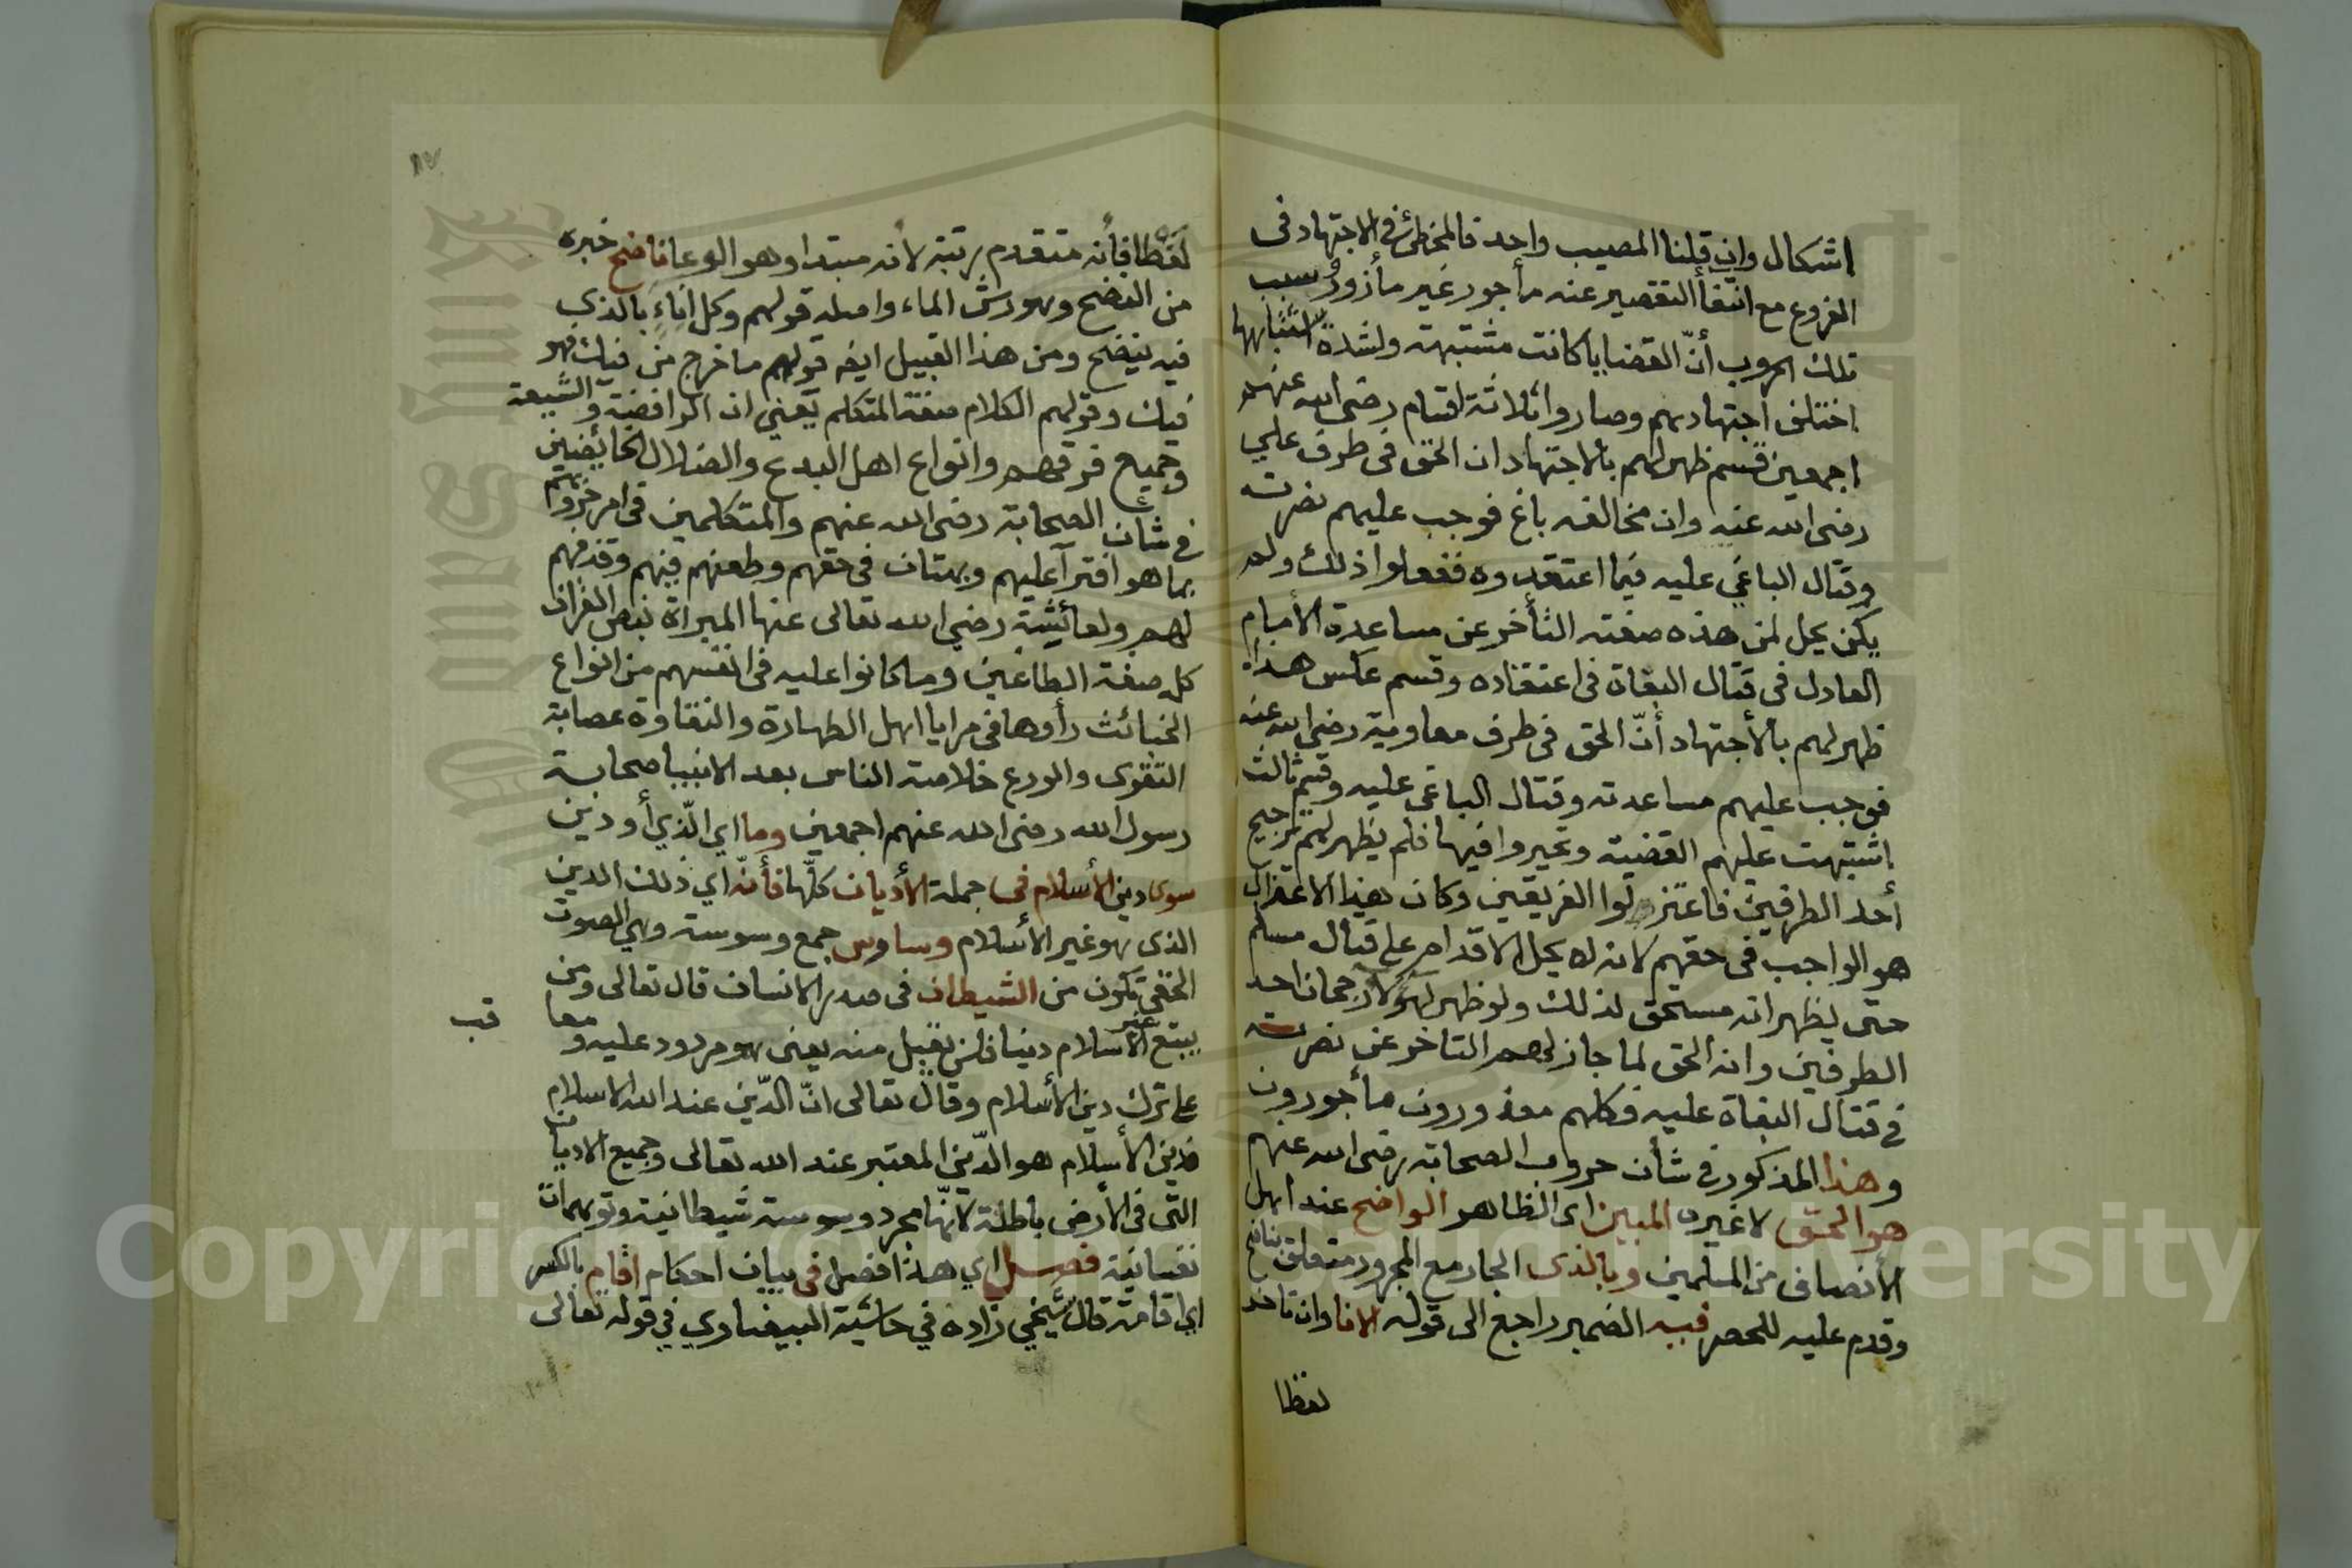 اشكال وان قلنا المصيب واحد فالمخطئ في الاجتهاد فى
الفروع مع انتفأ التقصير عنه مأجور غير مأزور وسبب
تلك الحروب أنّ القضايا كانت مشتبهة ولشدة اشتباهها
اختلف اجتهادهم وصاروا ثلاثة اقسام رضى الله عنهم
اجمعين قسم ظهر لهم بالاجتهاد ان الحق فى طرف علي
رضى الله عنه وان مخالفه باغ فوجب عليهم نصرته
وقتال الباغي عليه فيما اعتقدوه ففعلوا ذلك ولم
يكن يحل لمن هذه صفته التأخر عن مساعدة الأمام
العادل فى قتال البغاة فى اعتقاده وقسم عكس هذا
ظهر لهم بالأجتهاد أنّ الحق فى طرف معاوية رضى الله عنه
فوجب عليهم مساعدته وقتال الباغى عليه وقسم ثالث
اشتبهت عليهم القضية وتحيروا فيها فلم يظهر لهم ترجيح
أحد الطرفين فاعتزلوا الفريقين وكان هذا الاعتزال
هو الواجب فى حقهم لانه لا يحل الاقدام على قتال مسلم
حتى يظهر انه مستحق لذلك ولو ظهر لهؤلاء رجحان احد
الطرفين وان الحق لما جاز لهم التاخر عن نصرته
في قتال البغاة عليه فكلهم معذورون مأجورون
وهذا المذكور في شأن حروب الصحابة رضى الله عنهم
هو الحق لا غيره المبين اى الظاهر الواضح عند اهل
الأنصاف من المسلمين وبالذى الجار مع المجرور متعلق بناضح
وقدم عليه للحصر فيه الضمير راجع الى قوله الانا وان تاخر
لفظا
١٧
لفظا فأنه متقدم رتبة لأنه مبتدا وهو الوعا ناضح خبره
من النضح وهو رش الماء واصله قولهم وكل اناء بالذي
فيه ينضح ومن هذا القبيل ايضا قولهم ما خرج من فيك فهو
فيك وقولهم الكلام صفة المتكلم يعني ان الرافضة والشيعة
وجميع فرقهم وانواع اهل البدع والضلال الخائضين
في شأن الصحابة رضى الله عنهم والمتكلمين فى امر حروبهم
بما هو افترآ عليهم وبهتان في حقهم وطعنهم فيهم وقذفهم
لهم ولعائشة رضي الله تعالى عنها المبراة بنص القرآن
كله صفة الطاعنين وما كانوا عليه فى انفسهم من انواع
الخبائث رأوها في مرايا اهل الطهارة والنقاوة عصابة
التقوى والورع خلاصة الناس بعد الانبيا صحابة
رسول الله رضى الله عنهم اجمعين وما اي الّذي أو دين
سوى دين الأسلام فى جملة الأديان كلّها فأنّه اي ذلك الدين
الذى هو غير الأسلام وساوس جمع وسوسة وهى الصوت
الخفي تكون من الشيطان فى صدر الانسان قال تعالى ومن
يبتغ غير الأسلام دينا فلن يقبل منه يعنى هو مردود عليه ومعا
قب
على ترك دين الأسلام وقال تعالى انّ الدّين عند الله الاسلام
فدين الأسلام هو الدّين المعتبر عند الله تعالى وجميع الاديان
التى فى الأرض باطلة لأنّها مجرد وسوسة شيطانية وتوهمات
نفسانية فصل اي هذا فصل فى بيان احكام اقام بالكسر
اي اقامة قال شيخي زاده في حاشية البيضاوي في قوله تعالى